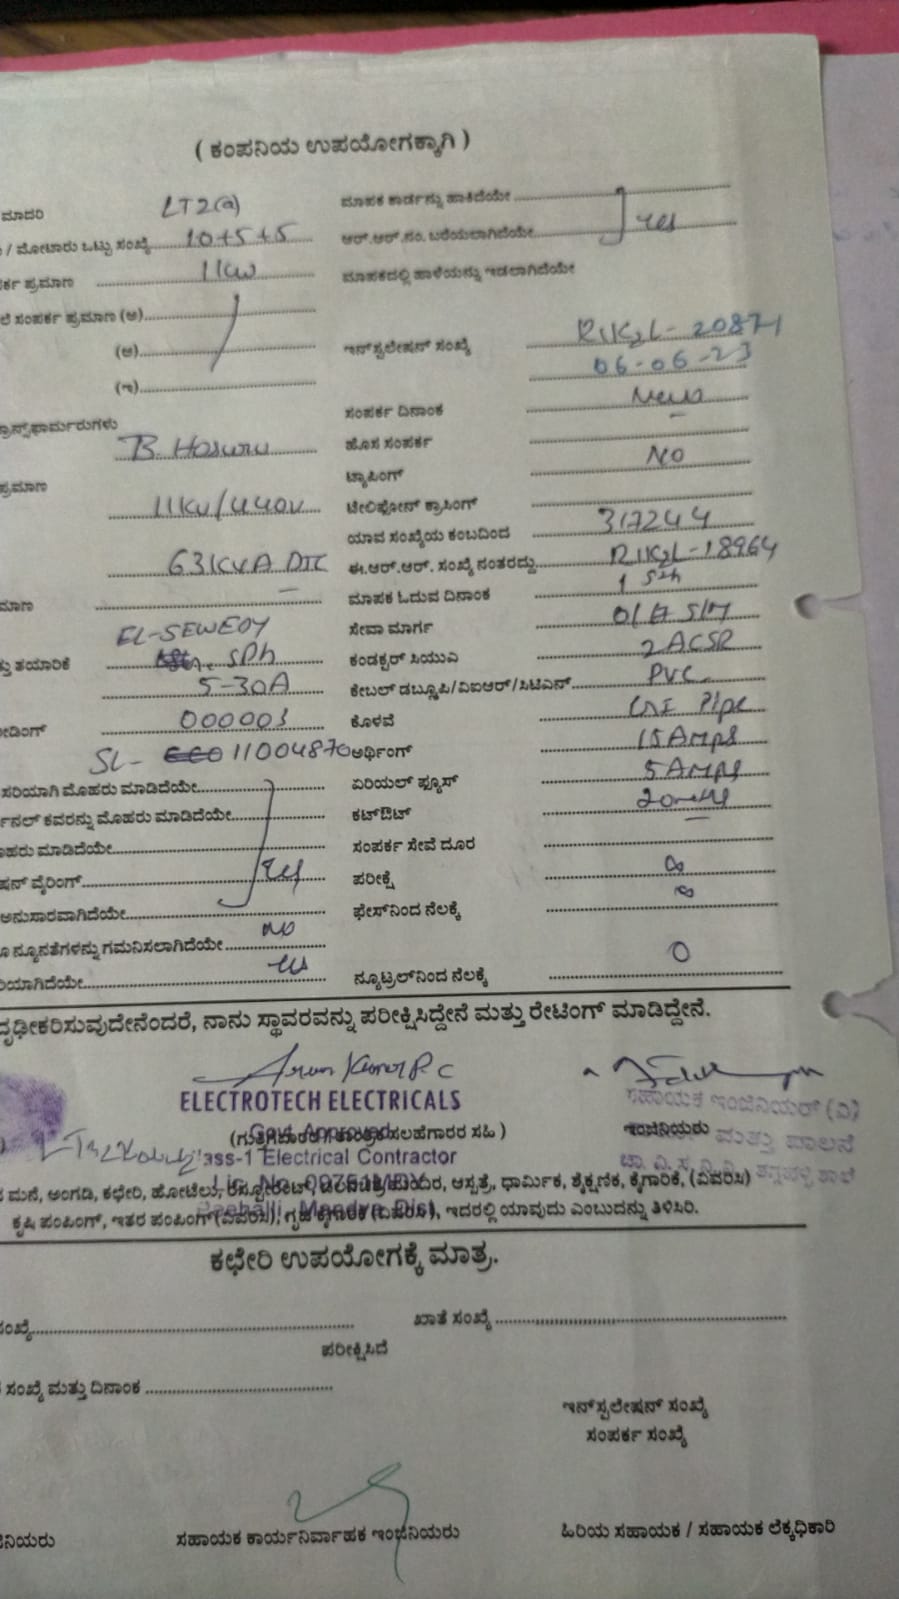 ( ಕಂಪನಿಯ ಉಪಯೋಗಕ್ಕಾಗಿ )
ಮಾದರಿ LT2(a) ಮಾಪಕ ಕಾರ್ಡನ್ನು ಹಾಕಿದೆಯೇ
/ ಮೋಟಾರು ಒಟ್ಟು ಸಂಖ್ಯೆ 10+5+5 ಆರ್.ಆರ್.ನಂ. ಬರೆಯಲಾಗಿದೆಯೇ yes
ಪ್ರಮಾಣ 1kw ಮಾಪಕದಲ್ಲಿ ಹಾಳೆಯನ್ನು ಇಡಲಾಗಿದೆಯೇ
ಸಂಪರ್ಕ ಪ್ರಮಾಣ (ಅ)
(ಆ) ಇನ್‌ಸ್ಟಲೇಷನ್ ಸಂಖ್ಯೆ R1K2L-20871
06-06-23
(ಇ)
ಸಂಪರ್ಕ ದಿನಾಂಕ New
B. Hosuru ಹೊಸ ಸಂಪರ್ಕ
ಪ್ರಮಾಣ ಟ್ಯಾಪಿಂಗ್ No
11kv/440v ಟೆಲಿಫೋನ್ ಕ್ರಾಸಿಂಗ್
ಯಾವ ಸಂಖ್ಯೆಯ ಕಂಬದಿಂದ 317244
63KVA DTC ಈ.ಆರ್.ಆರ್. ಸಂಖ್ಯೆ ನಂತರದ್ದು R1K2L-18964
ಮಾಪಕ ಓದುವ ದಿನಾಂಕ
EL-SEWEDY ಸೇವಾ ಮಾರ್ಗ
ತಯಾರಿಕೆ SPh ಕಂಡಕ್ಟರ್ ಸಿಯುಎ 2ACSR
5-30A ಕೇಬಲ್ ಡಬ್ಲೂಪಿ/ವಿಐಆರ್/ಸಿಟಿಎಸ್ PVC
000003 ಕೊಳವೆ GI Pipe
SL- 11004870 ಅರ್ಥಿಂಗ್ 15Amps
ಸರಿಯಾಗಿ ಮೊಹರು ಮಾಡಿದೆಯೇ ಏರಿಯಲ್ ಫ್ಯೂಸ್ 5Amps
ಕವರನ್ನು ಮೊಹರು ಮಾಡಿದೆಯೇ ಕಟ್‌ಔಟ್ 20mts
ಮಾಡಿದೆಯೇ ಸಂಪರ್ಕ ಸೇವೆ ದೂರ
ವೈರಿಂಗ್ yes ಪರೀಕ್ಷೆ ∞
ಅನುಸಾರವಾಗಿದೆಯೇ ಫೇಸ್‌ನಿಂದ ನೆಲಕ್ಕೆ ∞
ನ್ಯೂನತೆಗಳನ್ನು ಗಮನಿಸಲಾಗಿದೆಯೇ No
yes ನ್ಯೂಟ್ರಲ್‌ನಿಂದ ನೆಲಕ್ಕೆ 0
ನಾನು ಸ್ಥಾವರವನ್ನು ಪರೀಕ್ಷಿಸಿದ್ದೇನೆ ಮತ್ತು ರೇಟಿಂಗ್ ಮಾಡಿದ್ದೇನೆ.
Arun Kumar P. C
ELECTROTECH ELECTRICALS ಸಹಾಯಕ ಇಂಜಿನಿಯರ್ (ವಿ)
Govt. Approved ಇಂಜಿನಿಯರು ಮತ್ತು ಪಾಲನೆ
ass-1 Electrical Contractor
ಮನೆ, ಅಂಗಡಿ, ಕಛೇರಿ, ಹೋಟೆಲು, ಆಸ್ಪತ್ರೆ, ಧಾರ್ಮಿಕ, ಶೈಕ್ಷಣಿಕ, ಕೈಗಾರಿಕೆ, (ವಿವರಿಸಿ)
ಕೃಷಿ ಪಂಪಿಂಗ್, ಇತರ ಪಂಪಿಂಗ್ (ವಿವರಿಸಿ), ಗೃಹ ಕೈಗಾರಿಕೆ (ವಿವರಿಸಿ), ಇದರಲ್ಲಿ ಯಾವುದು ಎಂಬುದನ್ನು ತಿಳಿಸಿರಿ.
ಕಛೇರಿ ಉಪಯೋಗಕ್ಕೆ ಮಾತ್ರ.
ಖಾತೆ ಸಂಖ್ಯೆ
ಪರೀಕ್ಷಿಸಿದೆ
ಸಂಖ್ಯೆ ಮತ್ತು ದಿನಾಂಕ
ಇನ್‌ಸ್ಟಲೇಷನ್ ಸಂಖ್ಯೆ
ಸಂಪರ್ಕ ಸಂಖ್ಯೆ
ಸಹಾಯಕ ಕಾರ್ಯನಿರ್ವಾಹಕ ಇಂಜಿನಿಯರು ಹಿರಿಯ ಸಹಾಯಕ / ಸಹಾಯಕ ಲೆಕ್ಕಾಧಿಕಾರಿ